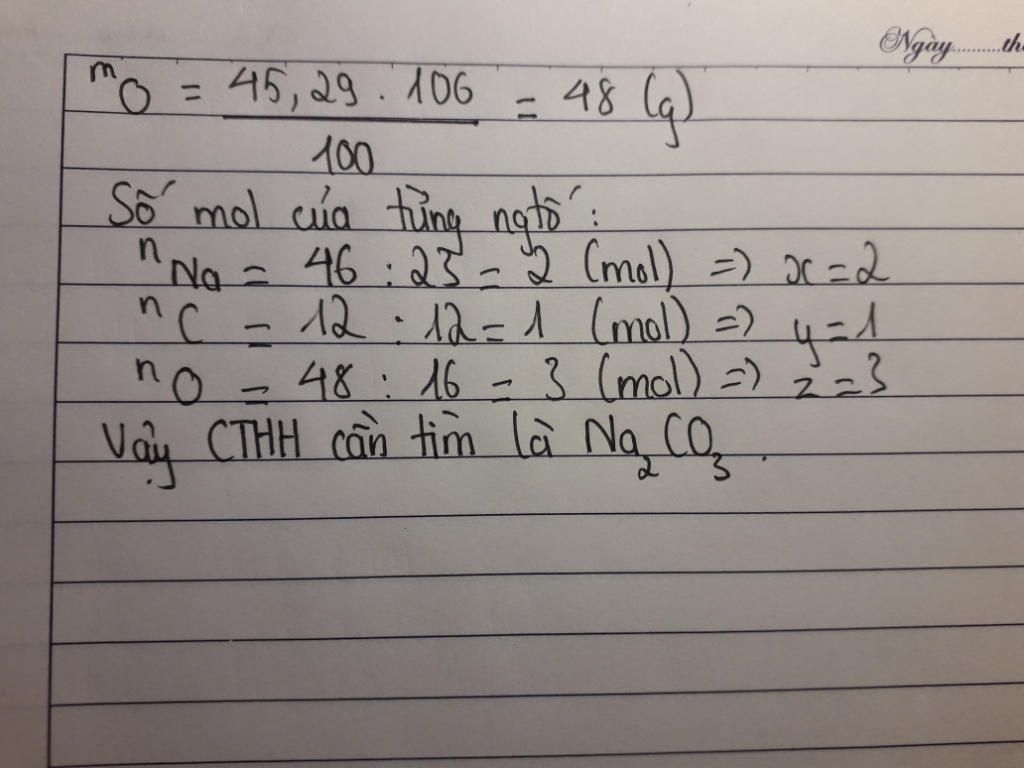 Ngày..........th
mO = 45,29 . 106 / 100 = 48 (g)
Số mol của từng ngtố :
nNa = 46 : 23 = 2 (mol) => x = 2
nC = 12 : 12 = 1 (mol) => y = 1
nO = 48 : 16 = 3 (mol) => z = 3
Vậy CTHH cần tìm là Na2CO3 .